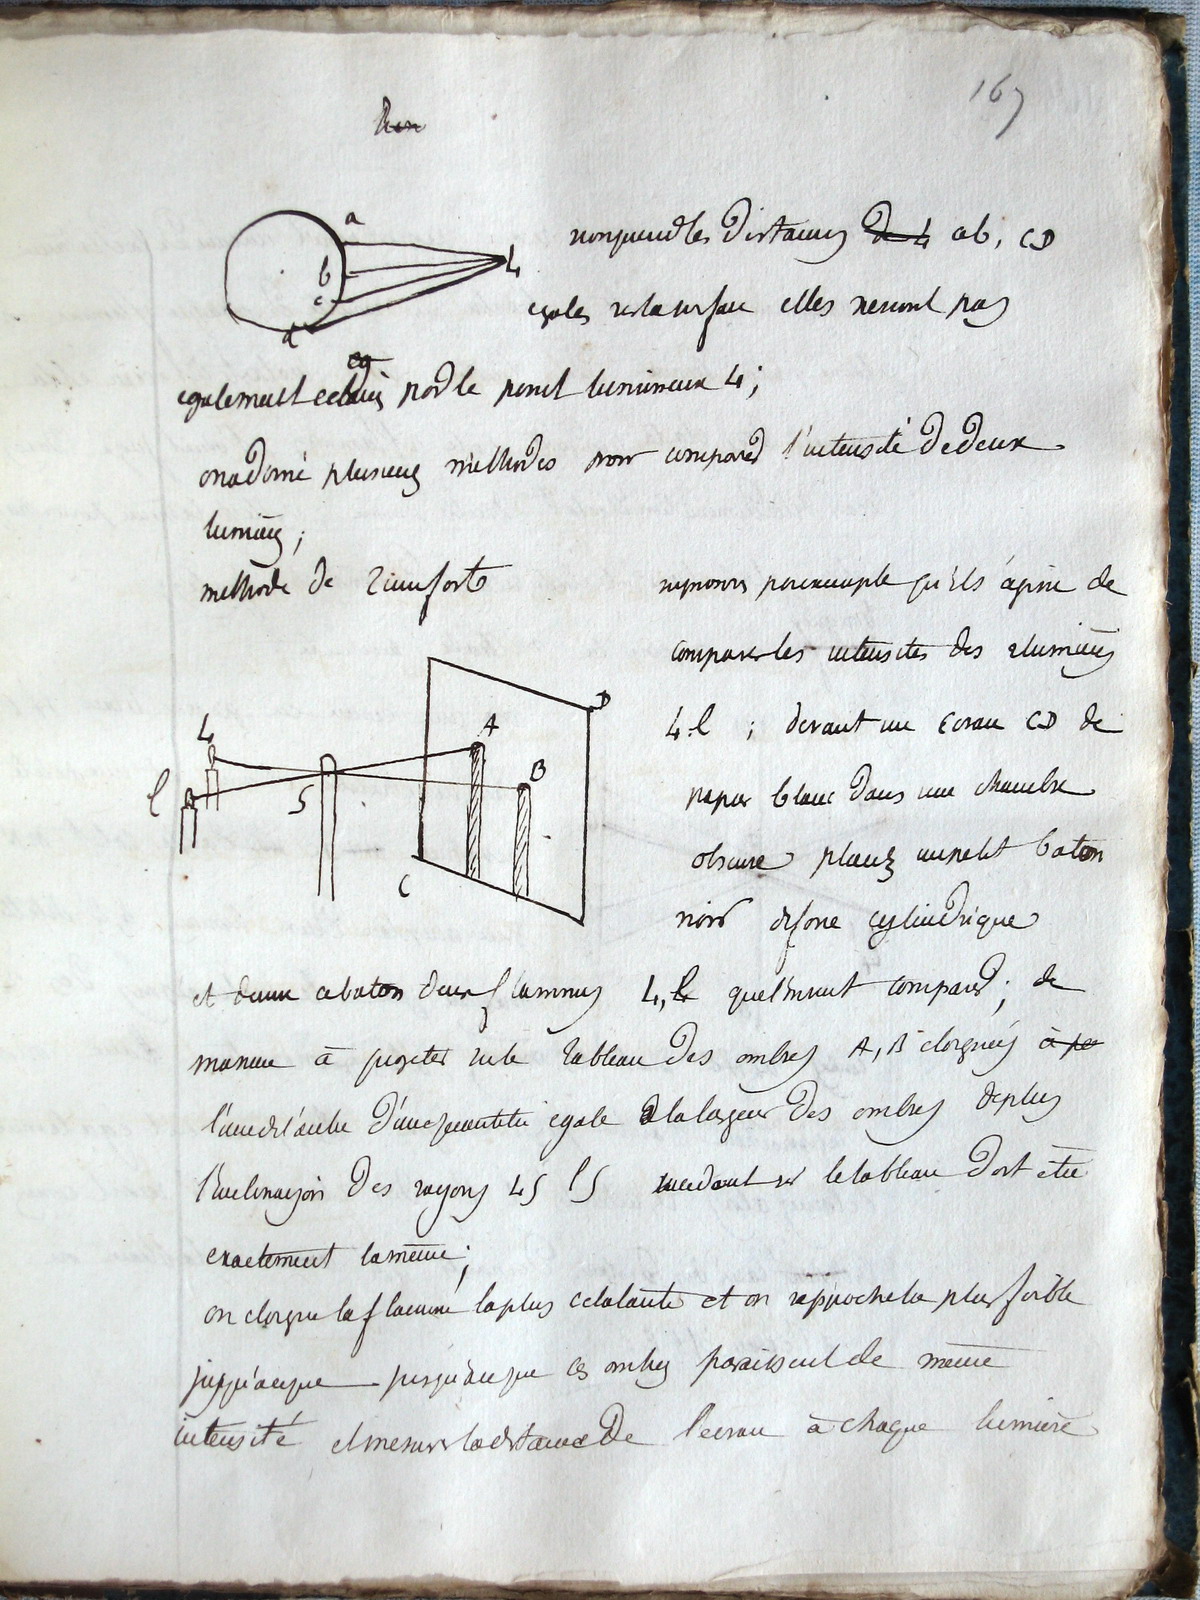 167
Ron
a
b
c
d
L
quand les distances de L ab, CD
egales sur la surface elles ne seront pas
egalement eclairées par le point lumineux L;
on a donné plusieurs méthodes pour comparer l'intensité de deux
lumières;
methode de Rumfort
supposons par exemple qu'il s'agisse de
comparer les intensités des 2 lumières
L l ; devant un ecran CD de
papier blanc dans une chambre
obscure placez un petit baton
noir de forme cylindrique
A
D
L
B
l
S
C
et devant ce baton deux flammes L, l que l'on veut comparer; de
maniere à projeter sur le tableau des ombres A, B eloignées à pe
l'une de l'autre d'une quantité egale à la largeur des ombres de plus
l'inclinaison des rayons LS lS sur le tableau doit être
exactement la même;
on eloigne la flamme la plus eclatante et on rapproche la plus foible
jusqu'à ce que jusqu'à ce que les ombres paraissent de même
intensité et mesurer la distance de l'ecran à chaque lumière